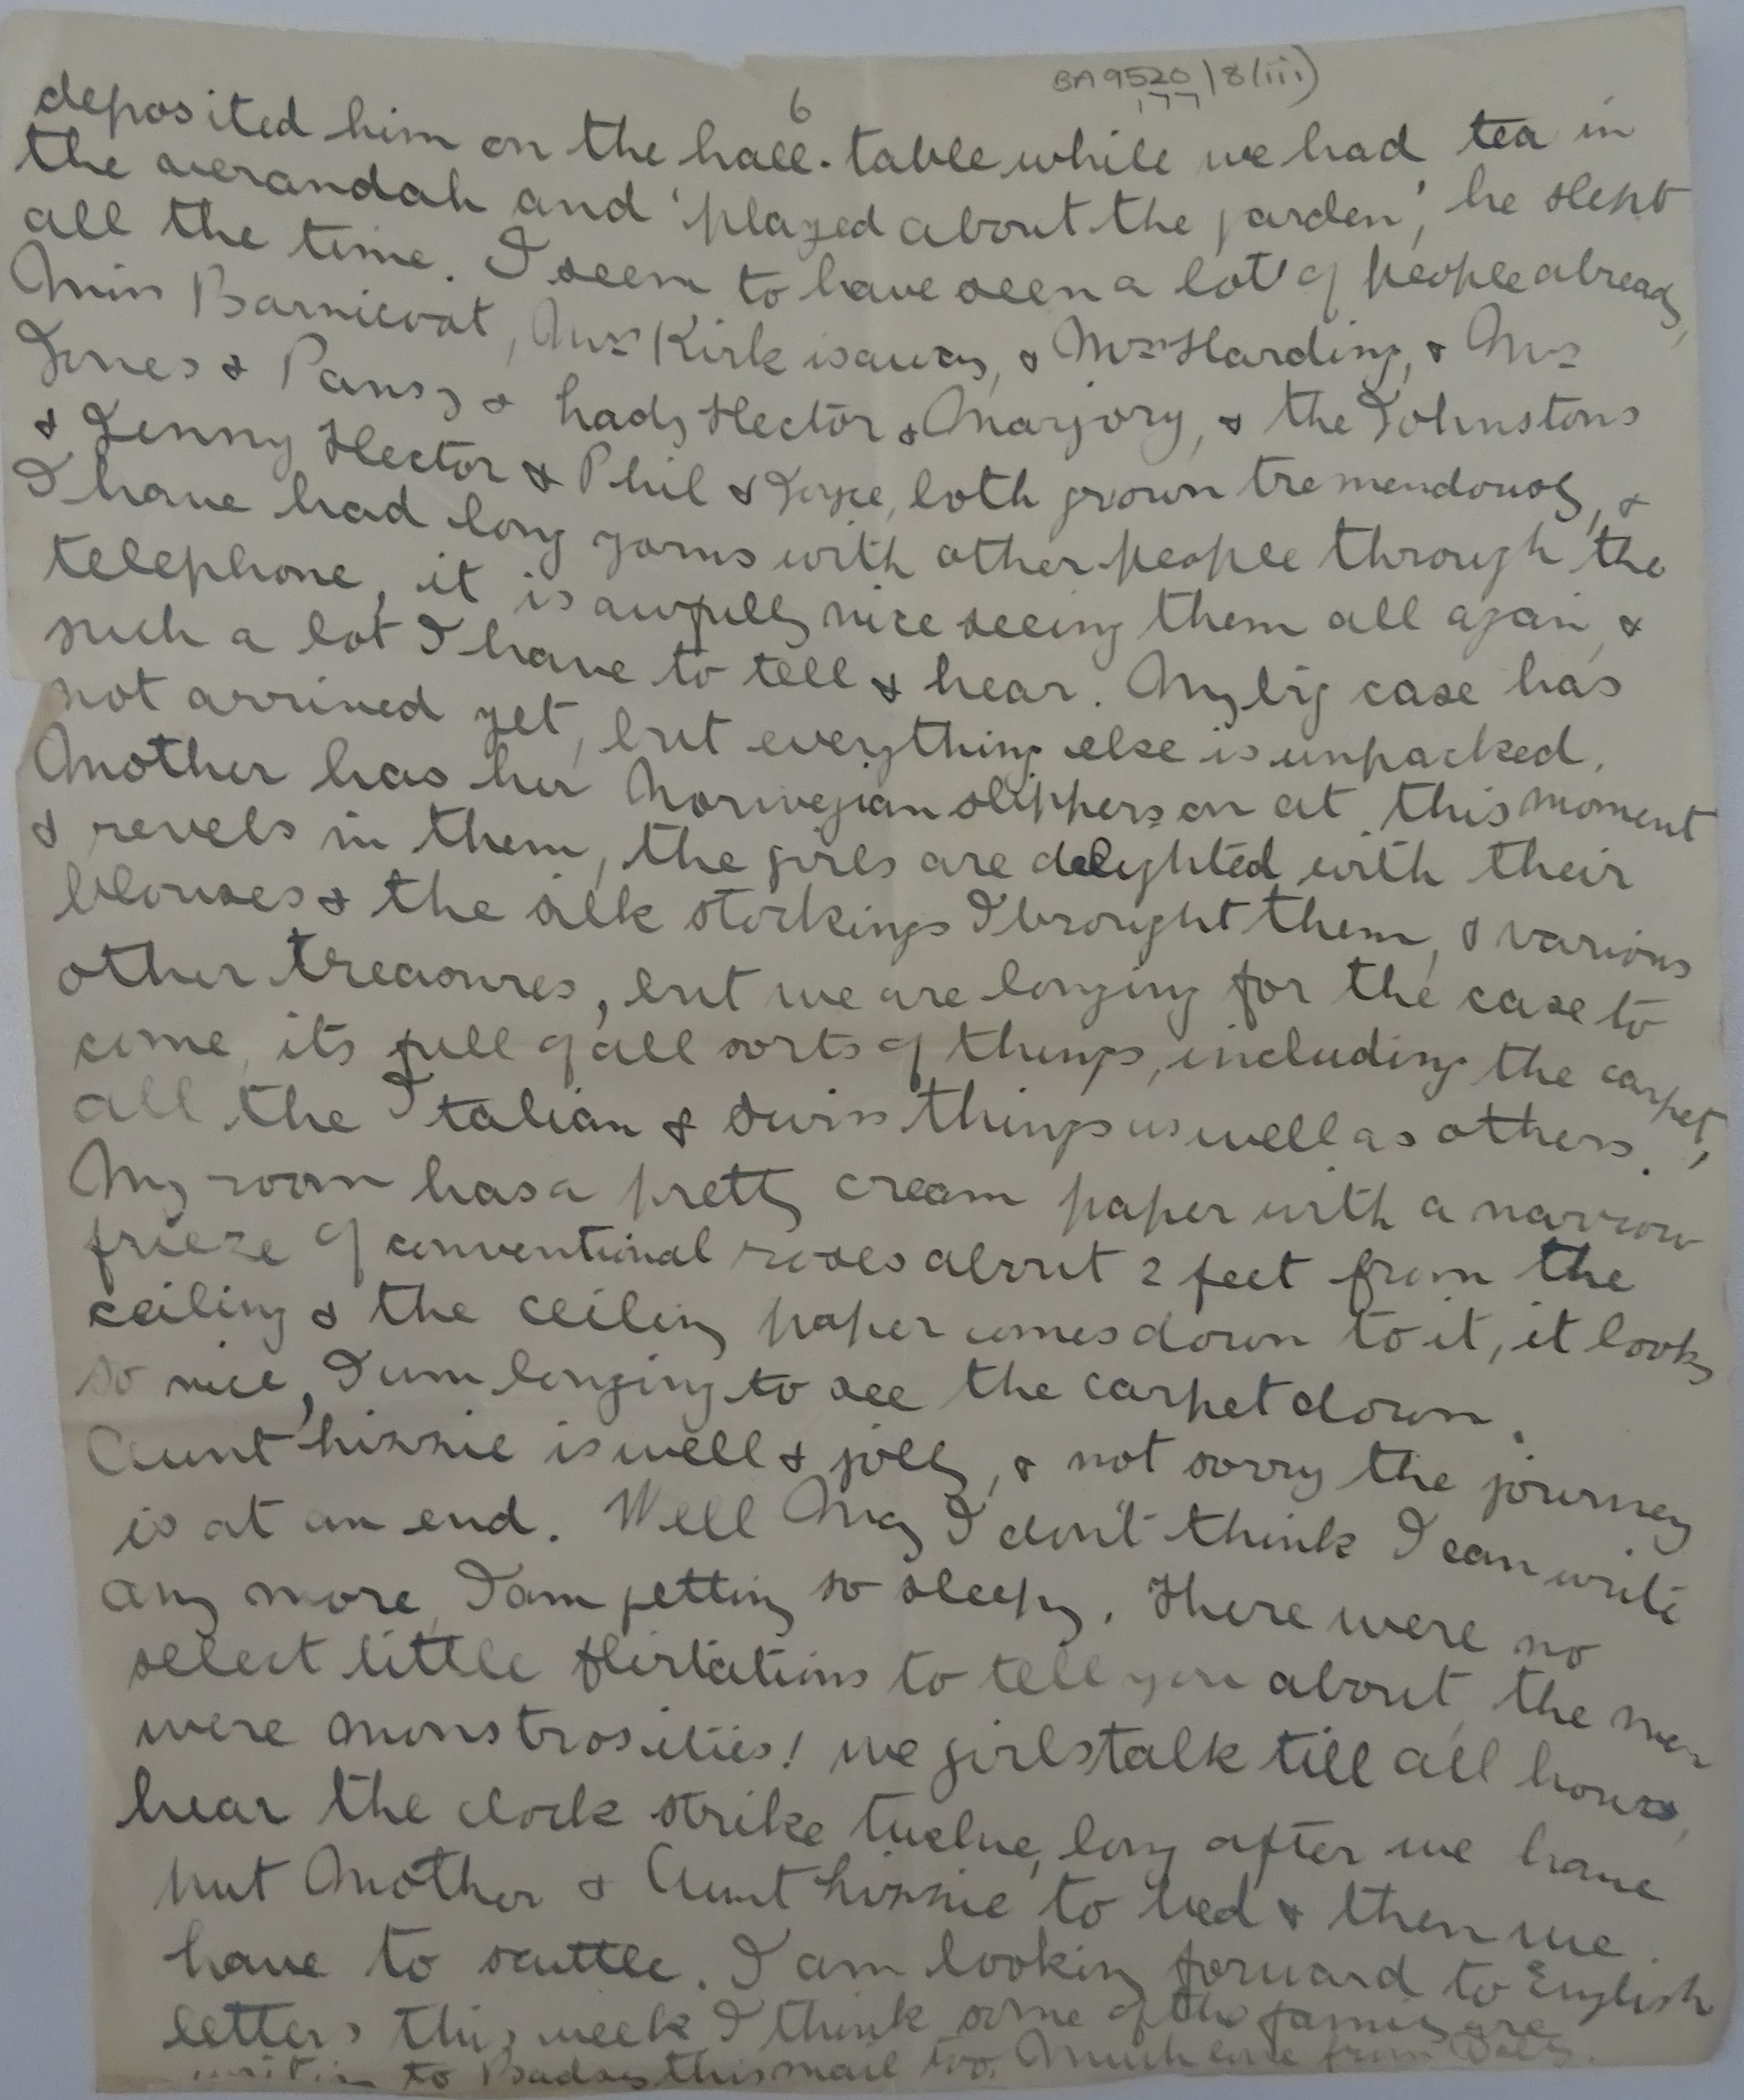 BA 9520/8(iii)
177
6
deposited him on the hall-table while we had tea in
the verandah and 'played about the garden', he slept
all the time. I seem to have seen a lot of people already,
Miss Barnicoat, Mrs Kirk is away, & Mrs Harding, & Mrs
Jones & Pansy & Lady Hector & Marjory, & the Johnstons
& Lenny Hector & Phil & Joyce, both grown tremendously, &
I have had long yarns with other people through the
telephone, it is awfully nice seeing them all again, &
such a lot I have to tell & hear. My big case has
not arrived yet, but everything else is unpacked.
Mother has her Norwegian slippers on at this moment
& revels in them, the girls are delighted with their
blouses & the silk stockings I brought them, & various
other treasures, but we are longing for the case to
come, its full of all sorts of things, including the carpet,
all the Italian & Swiss things as well as others.
My room has a pretty cream paper with a narrow
frieze of conventional roses about 2 feet from the
ceiling & the ceiling paper comes down to it, it looks
so nice, I am longing to see the carpet down.
Aunt Lizzie is well & jolly, & not sorry the journey
is at an end. Well May I don't think I can write
any more, I am getting so sleepy. There were no
select little flirtations to tell you about, the men
were monstrosities! We girls talk till all hours,
hear the clock strike twelve, long after we have
put Mother & Aunt Lizzie to bed & then we
have to scuttle. I am looking forward to English
letters this week. I think some of the family are
to this mail too. Much love from